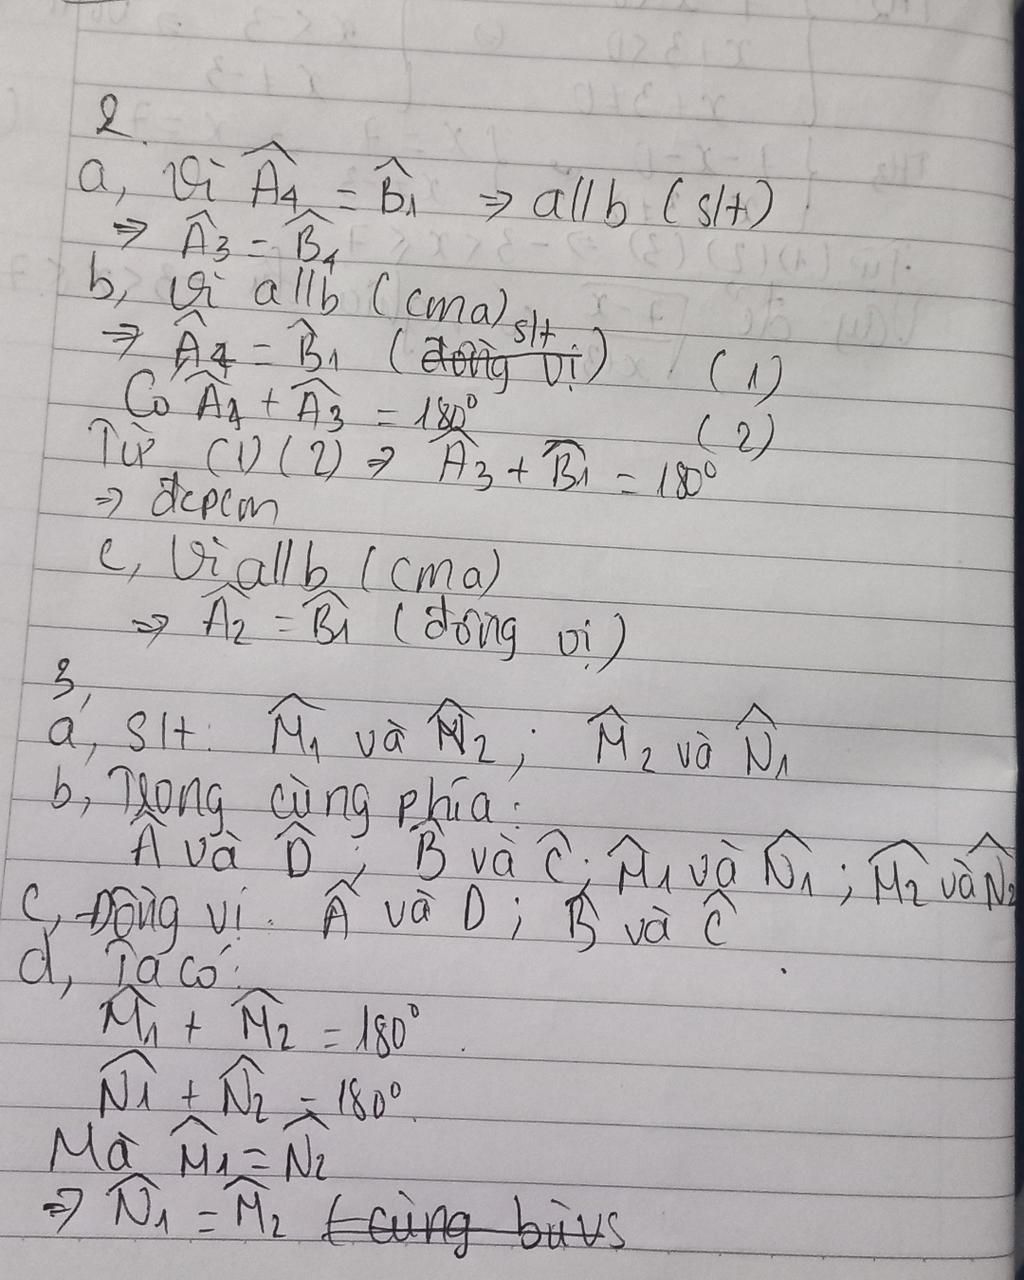 2.
a, Vì Â₄ = B̂₁ ⇒ a//b (slt)
⇒ Â₃ = B̂₄
b, Vì a//b (cma)
⇒ Â₄ = B̂₁ (đồng vị) slt (1)
Có Â₄ + Â₃ = 180° (2)
Từ (1) (2) ⇒ Â₃ + B̂₁ = 180°
⇒ đcpcm
c, Vì a//b (cma)
⇒ Â₂ = B̂₁ (đồng vị)
3,
a, slt: M̂₁ và N̂₂; M̂₂ và N̂₁
b, Trong cùng phía:
Â và D̂; B̂ và Ĉ; M̂₁ và N̂₁; M̂₂ và N̂₂
c, Đồng vị: Â và D; B̂ và Ĉ
d, Ta có:
M̂₁ + M̂₂ = 180°
N̂₁ + N̂₂ = 180°
Mà M̂₁ = N̂₂
⇒ N̂₁ = M̂₂ (cùng bù vs